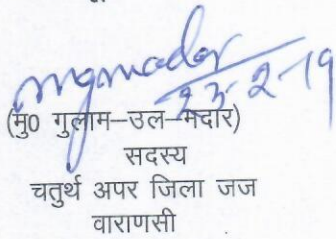 23-2-19
(मु0 गुलाम-उल-मदार)
सदस्य
चतुर्थ अपर जिला जज
वाराणसी